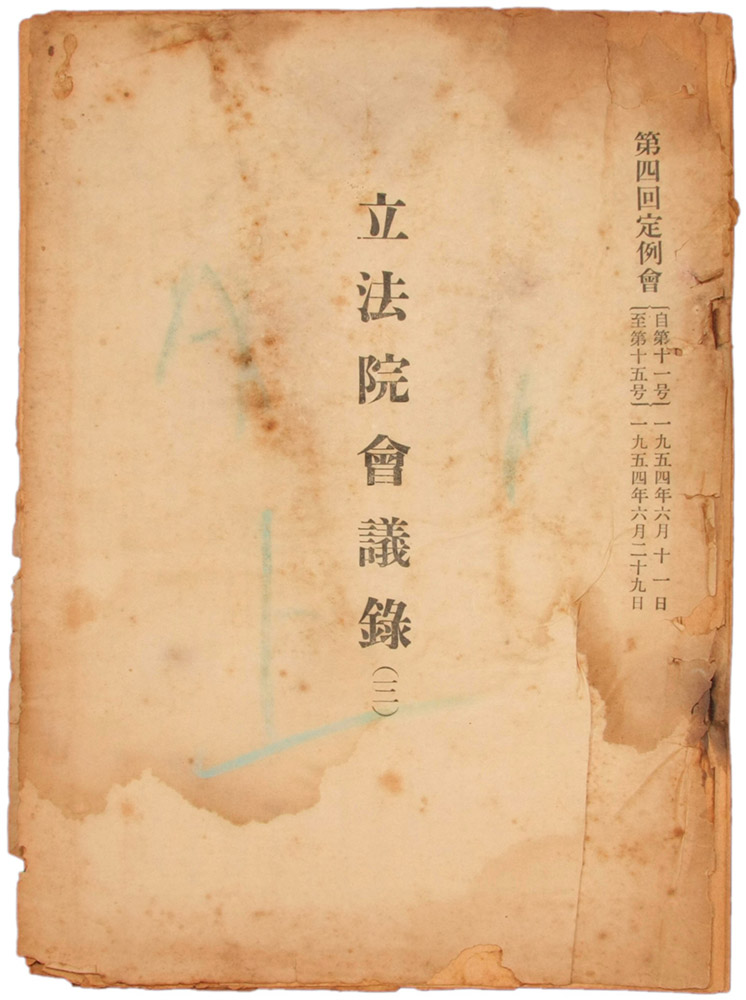 第四回定例會
自第十一号 一九五四年六月 十一日
至第十五号 一九五四年六月二十九日
立法院會議錄(三)
A